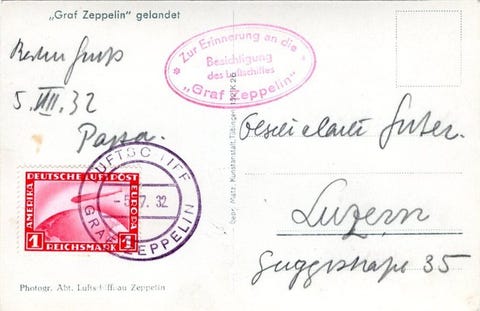 „Graf Zeppelin" gelandet
Zur Erinnerung an die
Besichtigung
des Luftschiffes
„Graf Zeppelin"
5. VII. 32
Papa.
Luzern
35
LUFTSCHIFF
-5.7.32
GRAF ZEPPELIN
DEUTSCHE LUFTPOST
AMERIKA
EUROPA
1 REICHSMARK 1
Gebr. Metz, Kunstanstalt, Tübingen
Photogr. Abt. Luftschiffbau Zeppelin